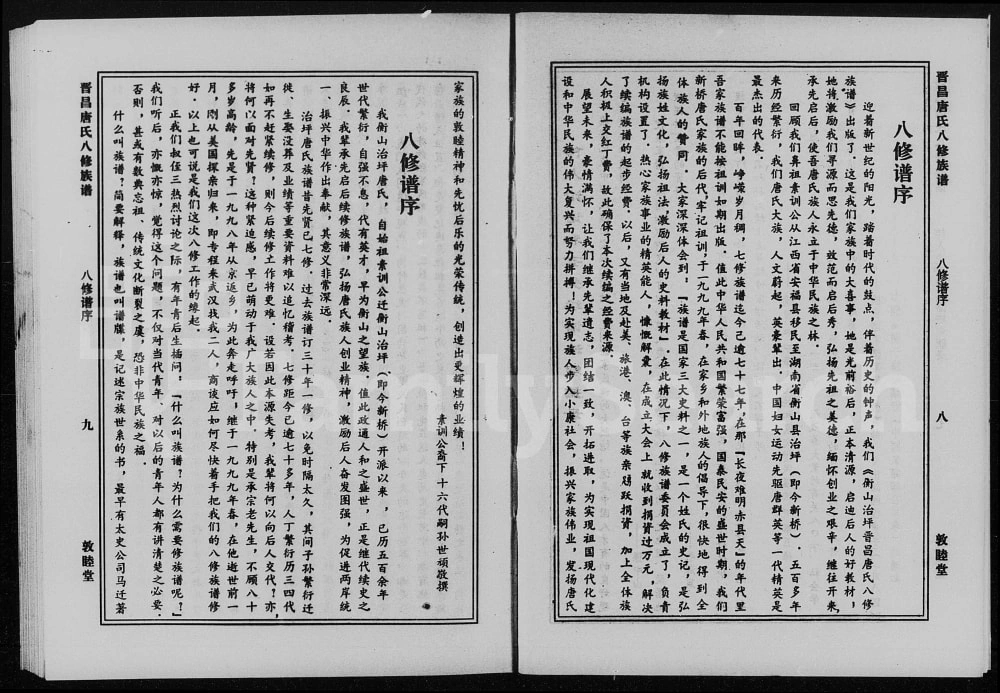 晋昌唐氏八修族谱
八修谱序
八
敦睦堂
八修谱序
迎着新世纪的阳光，踏着时代的鼓点，伴着历史的钟声，我们《衡山治坪晋昌唐氏八修
族谱》出版了．这是我们家族中的大喜事．她是光前裕后，正本清源，启迪后人的好教材；
她将激励我们寻源而思先德，效范而启后秀，弘扬先祖之美德，缅怀创业之艰辛，继往开来，
承先启后，使吾唐氏族人永立于中华民族之林．
回顾我们鼻祖素训公从江西省安福县移民至湖南省衡山县治坪（即今新桥）．五百多年
来历经繁衍，我们唐氏大族，人文蔚起，英豪辈出．中国妇女运动先驱唐群英等一代精英是
最杰出的代表．
百年回眸，峥嵘岁月稠，七修族谱迄今已逾七十七年，在那「长夜难明赤县天」的年代里
吾家族谱不能按祖训如期出版．值此中华人民共和国繁荣富强，国泰民安的盛世时期，我们
新桥唐氏家族的后代牢记祖训，于一九九九年春，在家乡和外地族人的倡导下，很快地得到全
体族人的赞同．大家深深体会到：「族谱是国家三大史料之一，是一个姓氏的史记，是弘
扬族姓文化，弘扬祖法，激励后人的史料教材」．在此情况下，八修族谱委员会成立了，负责
机构设置了．热心家族事业的精英能人，慷慨解囊，在成立大会上就收到捐资过万元，解决
了续编族谱的起步经费．以后，又有当地及赴美、旅港、澳、台等族亲踊跃捐资，加上全体族
人积极上交红丁费，故此确保了本次续编之经费来源．
展望未来，豪情满怀，让我们继承先辈遗志，团结一致，开拓进取，为实现祖国现代化建
设和中华民族的伟大复兴而努力拼搏！为实现族人步入小康社会，振兴家族伟业，发扬唐氏
家族的敦睦精神和先忧后乐的光荣传统，创造出更辉煌的业绩！
素训公裔下十六代嗣孙世顽敬撰
八修谱序
我衡山治坪唐氏，自始祖素训公迁衡山治坪（即今新桥）开派以来，已历五百余年
世代繁衍，自强不息，代有英才，早为衡山之望族．值此政通人和之盛世，正是继代续史之
良辰．我辈承先启后续修族谱，弘扬唐氏族人创业精神，激励后人奋发图强，为促进两岸统
一、振兴中华作出奉献，其意义非常深远．
治坪唐氏族谱昔先贤已七修．过去族谱订三十年一修，以免时隔太久，其间子孙繁衍迁
徙、生娶没葬及业绩等重要资料难以追忆稽考．七修距今已逾七十多年，人丁繁衍历三四代
如再不赶紧续修，则今后续修工作将更难．设若因此本源失考，我辈将何以向后人交代？亦
将何以面对先贤？这种紧迫感，早已萌动于我广大族人之中．特别是承宗老先生，不顾八十
多岁高龄，先是于一九九八年从京返乡，为此奔走呼吁，继于一九九九年春，在他逝世前一
月，刚从美国探亲归来，即专程来武汉找我二人，商谈应如何尽快着手把我们的八修族谱修
好．以上也可说是我们这次八修工作的缘起．
正我们叔侄三热烈讨论之际，有年青后生插问：「什么叫族谱？为什么需要修族谱呢？」
我们听后，亦慨亦惊，觉得这个问题，不仅对当代青年、对以后的青年人都有讲清楚之必要．
否则，甚或有数典忘祖，传统文化断裂之虞，恐非中华民族之福．
什么叫族谱？简要解释，族谱也叫谱牒，是记述宗族世系的书，最早有太史公司马迁著
晋昌唐氏八修族谱
八修谱序
九
敦睦堂